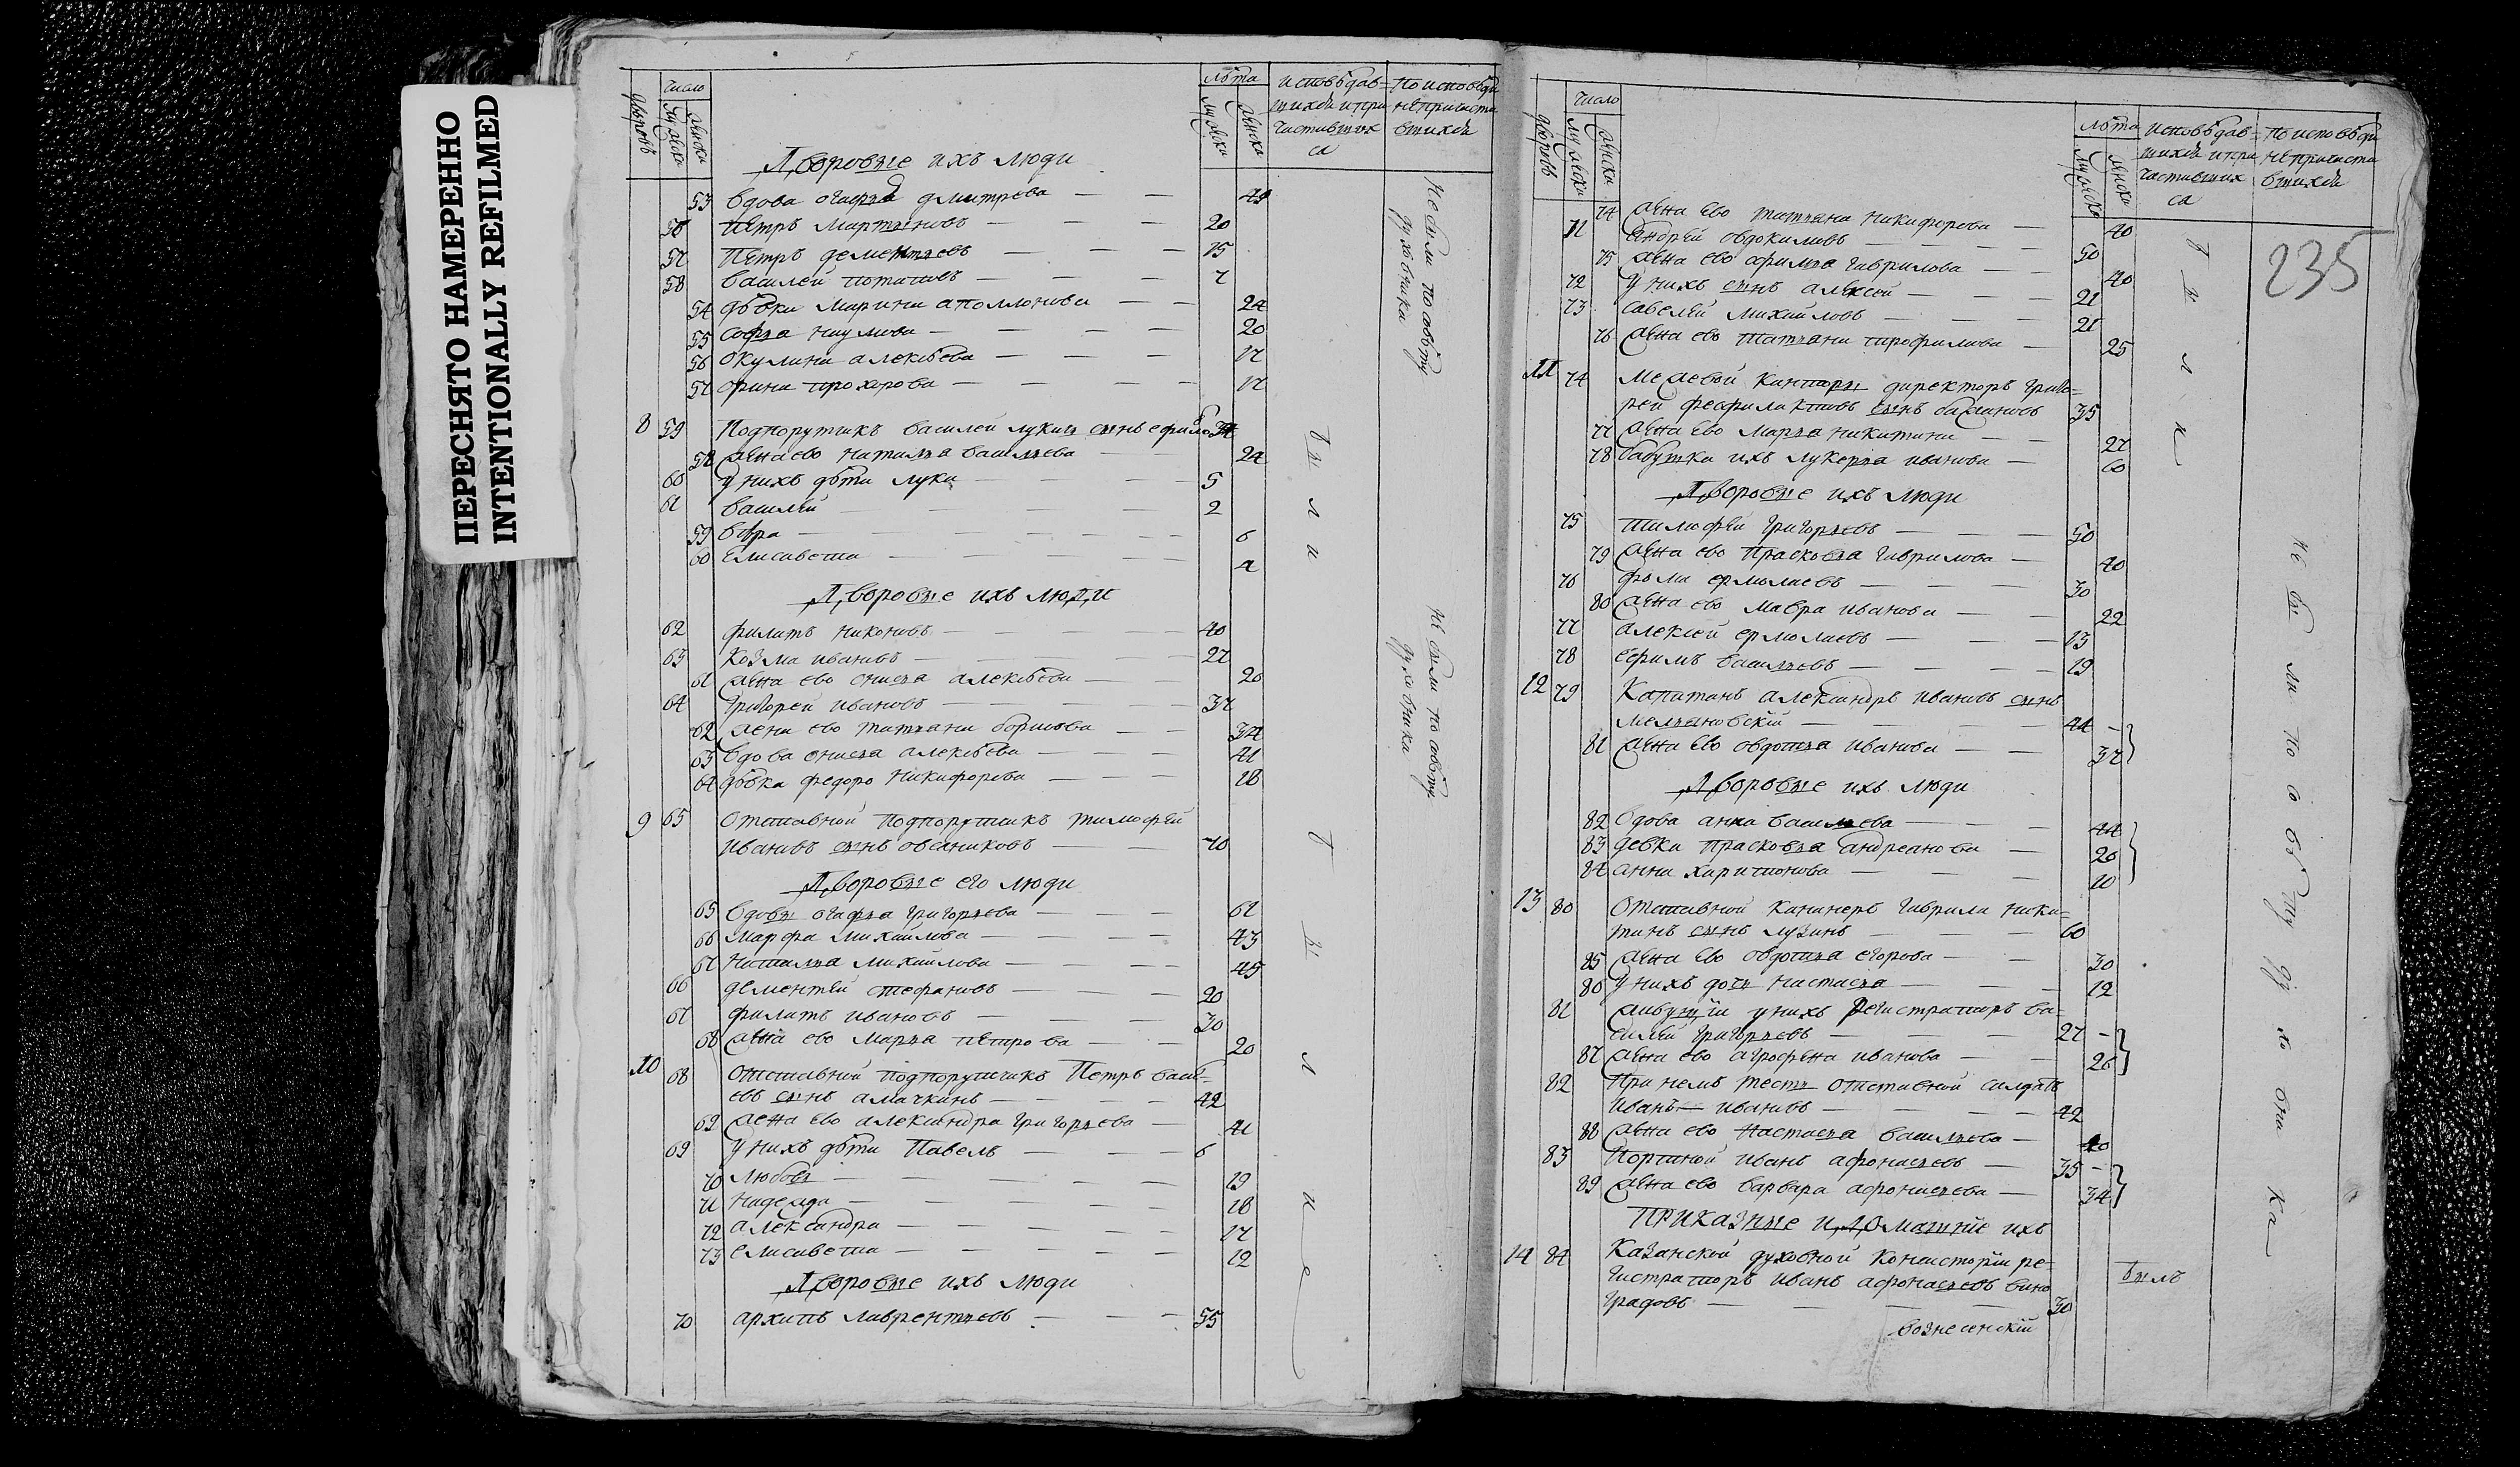 ПЕРЕСНЯТО НАМЕРЕННО
INTENTIONALLY REFILMED
число
лѣта
исповѣдав- по исповѣди
дворовъ
мужска
женска
шихся и при непричасти
частивших вшихся
ся
Дворовые ихъ люди
53 вдова огафья дмитрева 49
56 Петръ Мартыновъ 20
57 Петръ дементьевъ 15
58 Василей потаповъ 7
54 дѣвки Марина аполлонова 24
55 софья наумова 20
56 окулина алексѣева 17
57 орина прохорова 17
не были по совѣту
духовника
8 59 Подпорутчикъ василей лукин сынъ
58 жена ево наталья васильева 24
60 у нихъ дѣти лука 5
61 василей 2
59 вѣра 6
60 елисавета 4
были
Дворовые ихъ люди
62 филатъ никоновъ 40
63 козма ивановъ 27
61 жена ево онисья алексѣева 20
64 григорей ивановъ 37
62 жена ево татьяна борисова 34
63 вдова онисья алексѣева 41
64 дѣвка федора никифорова 18
не были по совѣту
духовника
9 65 отставной подпорутчикъ тимофей
ивановъ сынъ овсяниковъ 70
Дворовые его люди
65 вдовы огафья григорьева 61
66 марфа михайлова 43
67 наталья михайлова 45
66 дементей стефановъ 20
67 филатъ ивановъ 30
68 жена ево марья петрова 20
10 68 отставной подпорутчикъ Петръ васил-
евъ сынъ алачкинъ 42
69 жена ево александра григорьева 41
69 у нихъ дѣти Павелъ 6
70 любовь 19
71 надежда 18
72 александра 17
73 елисавета 12
были
Дворовые ихъ люди
70 архипъ лаврентьевъ 55
число
лѣта
исповѣдав- по исповѣди
дворовъ
мужска
женска
шихся и при непричасти
частивших вшихся
ся
235
74 жена ево татьяна никифорова 40
71 андрей овдокимовъ 50
75 жена ево афимья гаврилова 40
72 у нихъ сынъ алексей 21
73 савелей михайловъ 21
76 жена ево татьяна трофимова 25
11 74 межевой канторы директоръ григо-
рей феофилактовъ сынъ бажановъ 35
77 жена ево марья никитина 27
78 бабушка ихъ лукерья иванова 60
были
Дворовые ихъ люди
75 тимофей григорьевъ 50
79 жена ево прасковья гаврилова 40
76 фома ермолаевъ 30
80 жена ево мавра иванова 22
77 алексей ермолаевъ 13
78 ефимъ васильевъ 19
12 79 Капитанъ александръ ивановъ сынъ
44
81 жена ево овдотья иванова 37
Дворовые ихъ люди
82 вдова анна васильева 44
83 девки прасковья андреанова 20
84 анна харитонова 10
13 80 отставной канинеръ гаврила ники-
тинъ сынъ лузинъ 60
85 жена ево овдотья егорова 30
86 у нихъ дочь настасья 12
81 живущїи у нихъ регистраторъ ва-
силей григорьевъ 27
87 жена ево агрофена иванова 26
82 при немъ тесть отставной салдатъ
иванъ ивановъ 42
88 жена ево настасья васильева 40
83 портной иванъ афонасьевъ 35
89 жена ево варвара афонасьева 34
не были по совѣту духовника
Приказные и домашнїе ихъ
14 84 Казанской духовной консисторїи ре-
гистраторъ иванъ афонасьевъ вино
градовъ 30
былъ
вознесенскїй